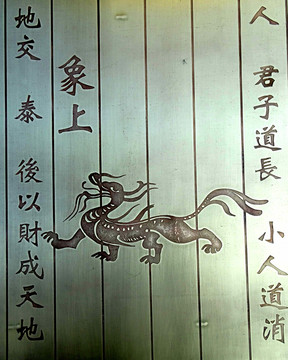 人 君子道長 小人道消
象上
地交 泰 後以財成天地